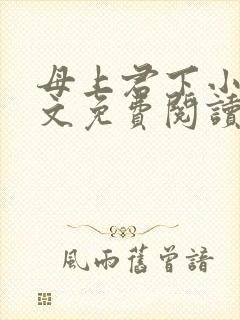 母上君下小
文免費閱讀
風雨舊曾諳